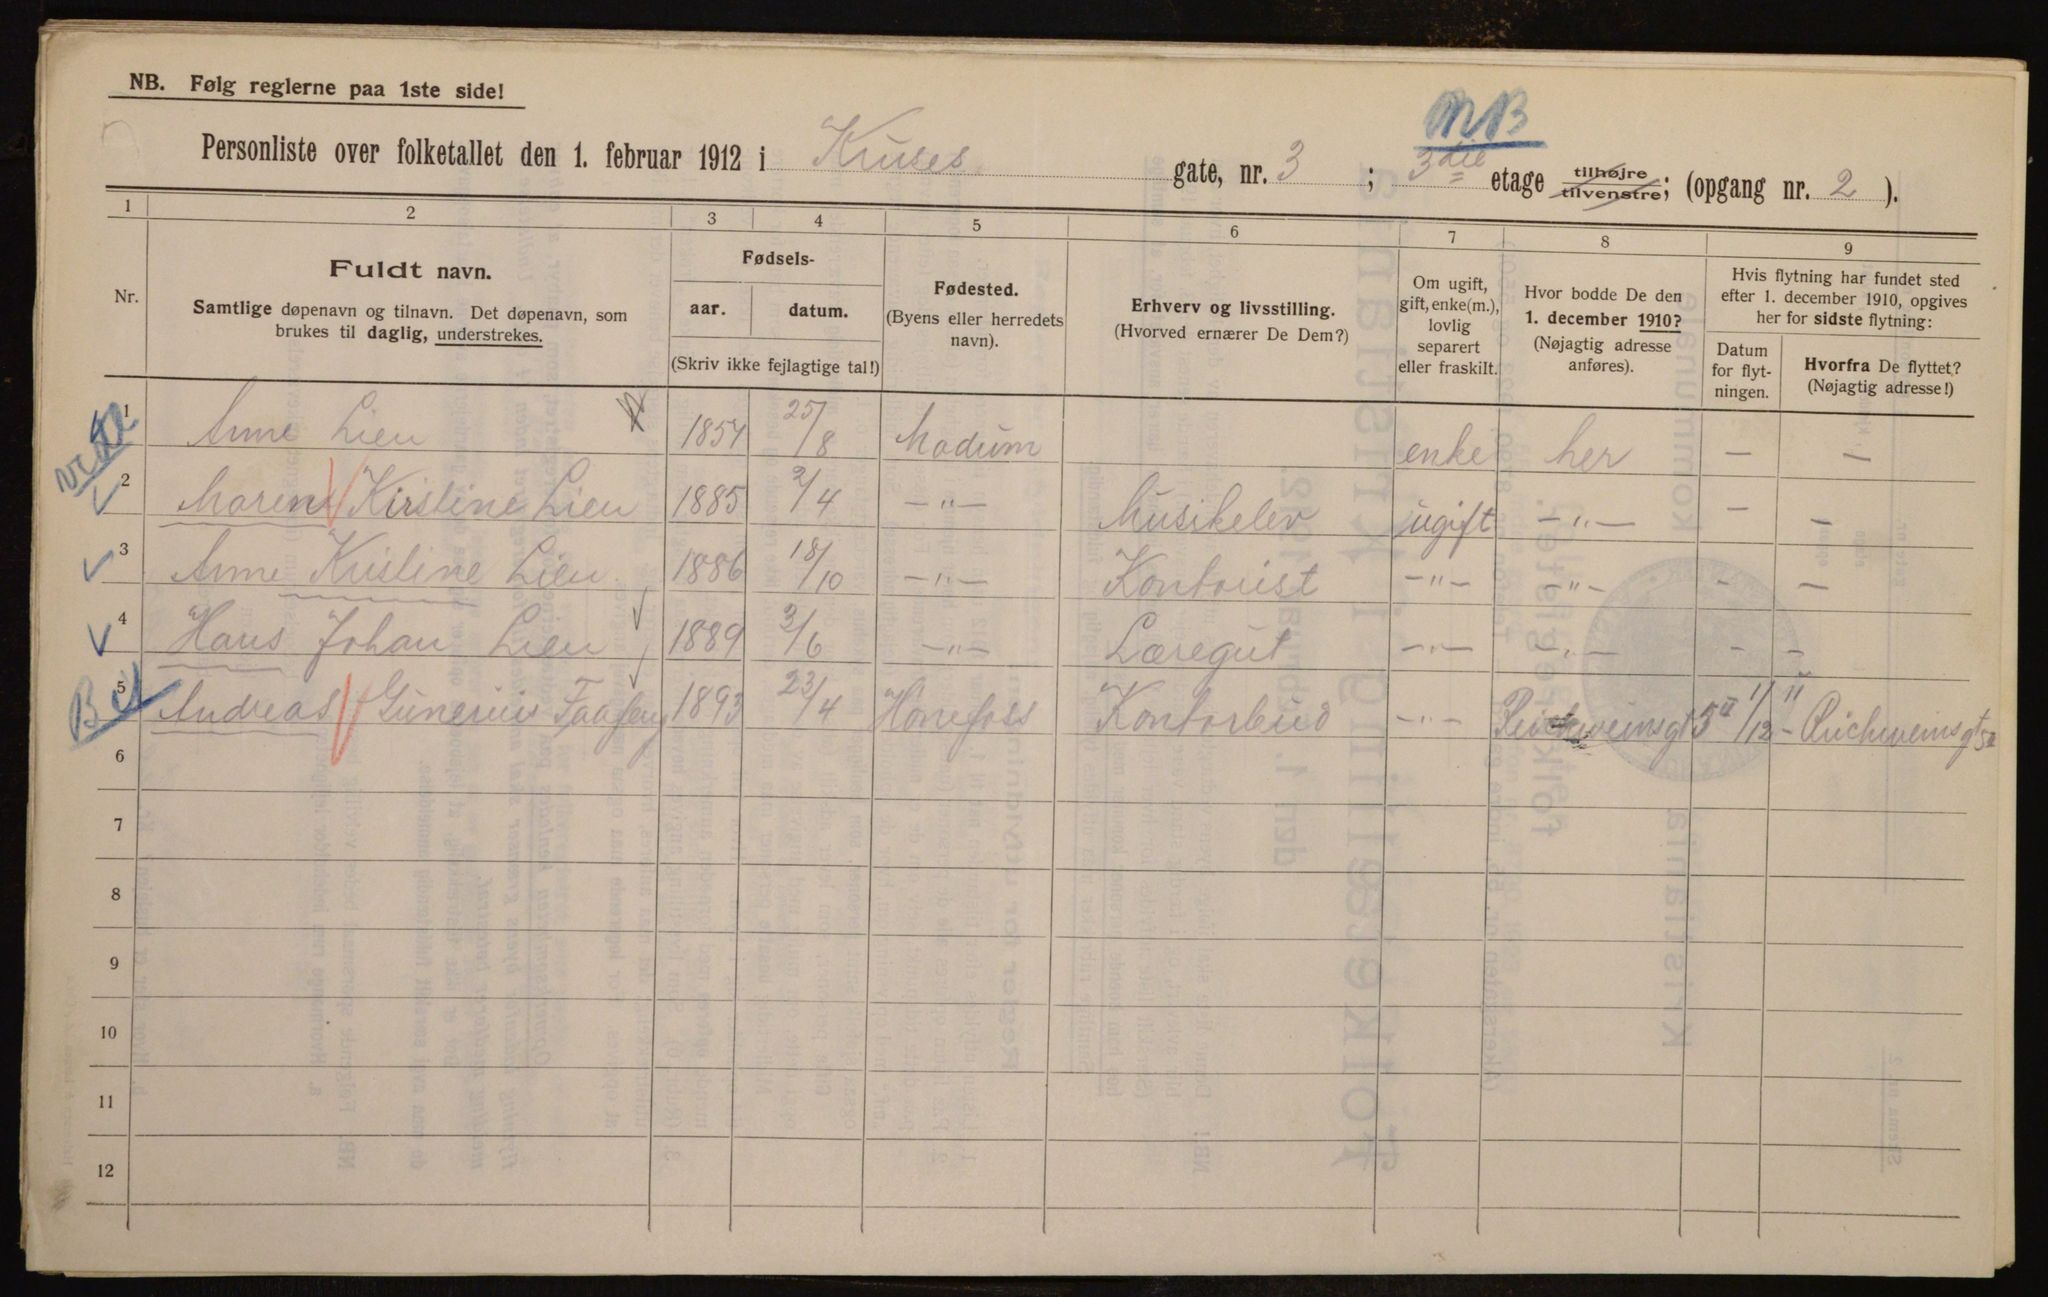 NB. Følg reglerne paa 1ste side!
NB
Personliste over folketallet den 1. februar 1912 i Kruses gate, nr. 3 ; 3die etage tilhøjre tilvenstre; (opgang nr. 2 ).
1 2 3 4 5 6 7 8 9
Nr.
Fuldt navn.
Samtlige døpenavn og tilnavn. Det døpenavn, som
brukes til daglig, understrekes.
Fødsels-
aar. datum.
(Skriv ikke fejlagtige tal!)
Fødested.
(Byens eller herredets
navn).
Erhverv og livsstilling.
(Hvorved ernærer De Dem?)
Om ugift,
gift, enke(m.),
lovlig
separert
eller fraskilt.
Hvor bodde De den
1. december 1910?
(Nøjagtig adresse
anføres).
Hvis flytning har fundet sted
efter 1. december 1910, opgives
her for sidste flytning:
Datum
for flyt-
ningen.
Hvorfra De flyttet?
(Nøjagtig adresse!)
1 Anne Lien 1854 25/8 Modum enke her — —
2 Maren Kirstine Lien 1885 2/4 —"— Musikelev ugift —"— — —
3 Anne Kristine Lien 1886 18/10 —"— Kontorist —"— —"— — —
4 Hans Johan Lien 1889 3/6 —"— Læregut —"— —"— — —
5 Andreas Gunerius 1893 23/4 Hønefoss Kontorbud —"— 5 II 1/12 11 —
6
7
8
9
10
11
12